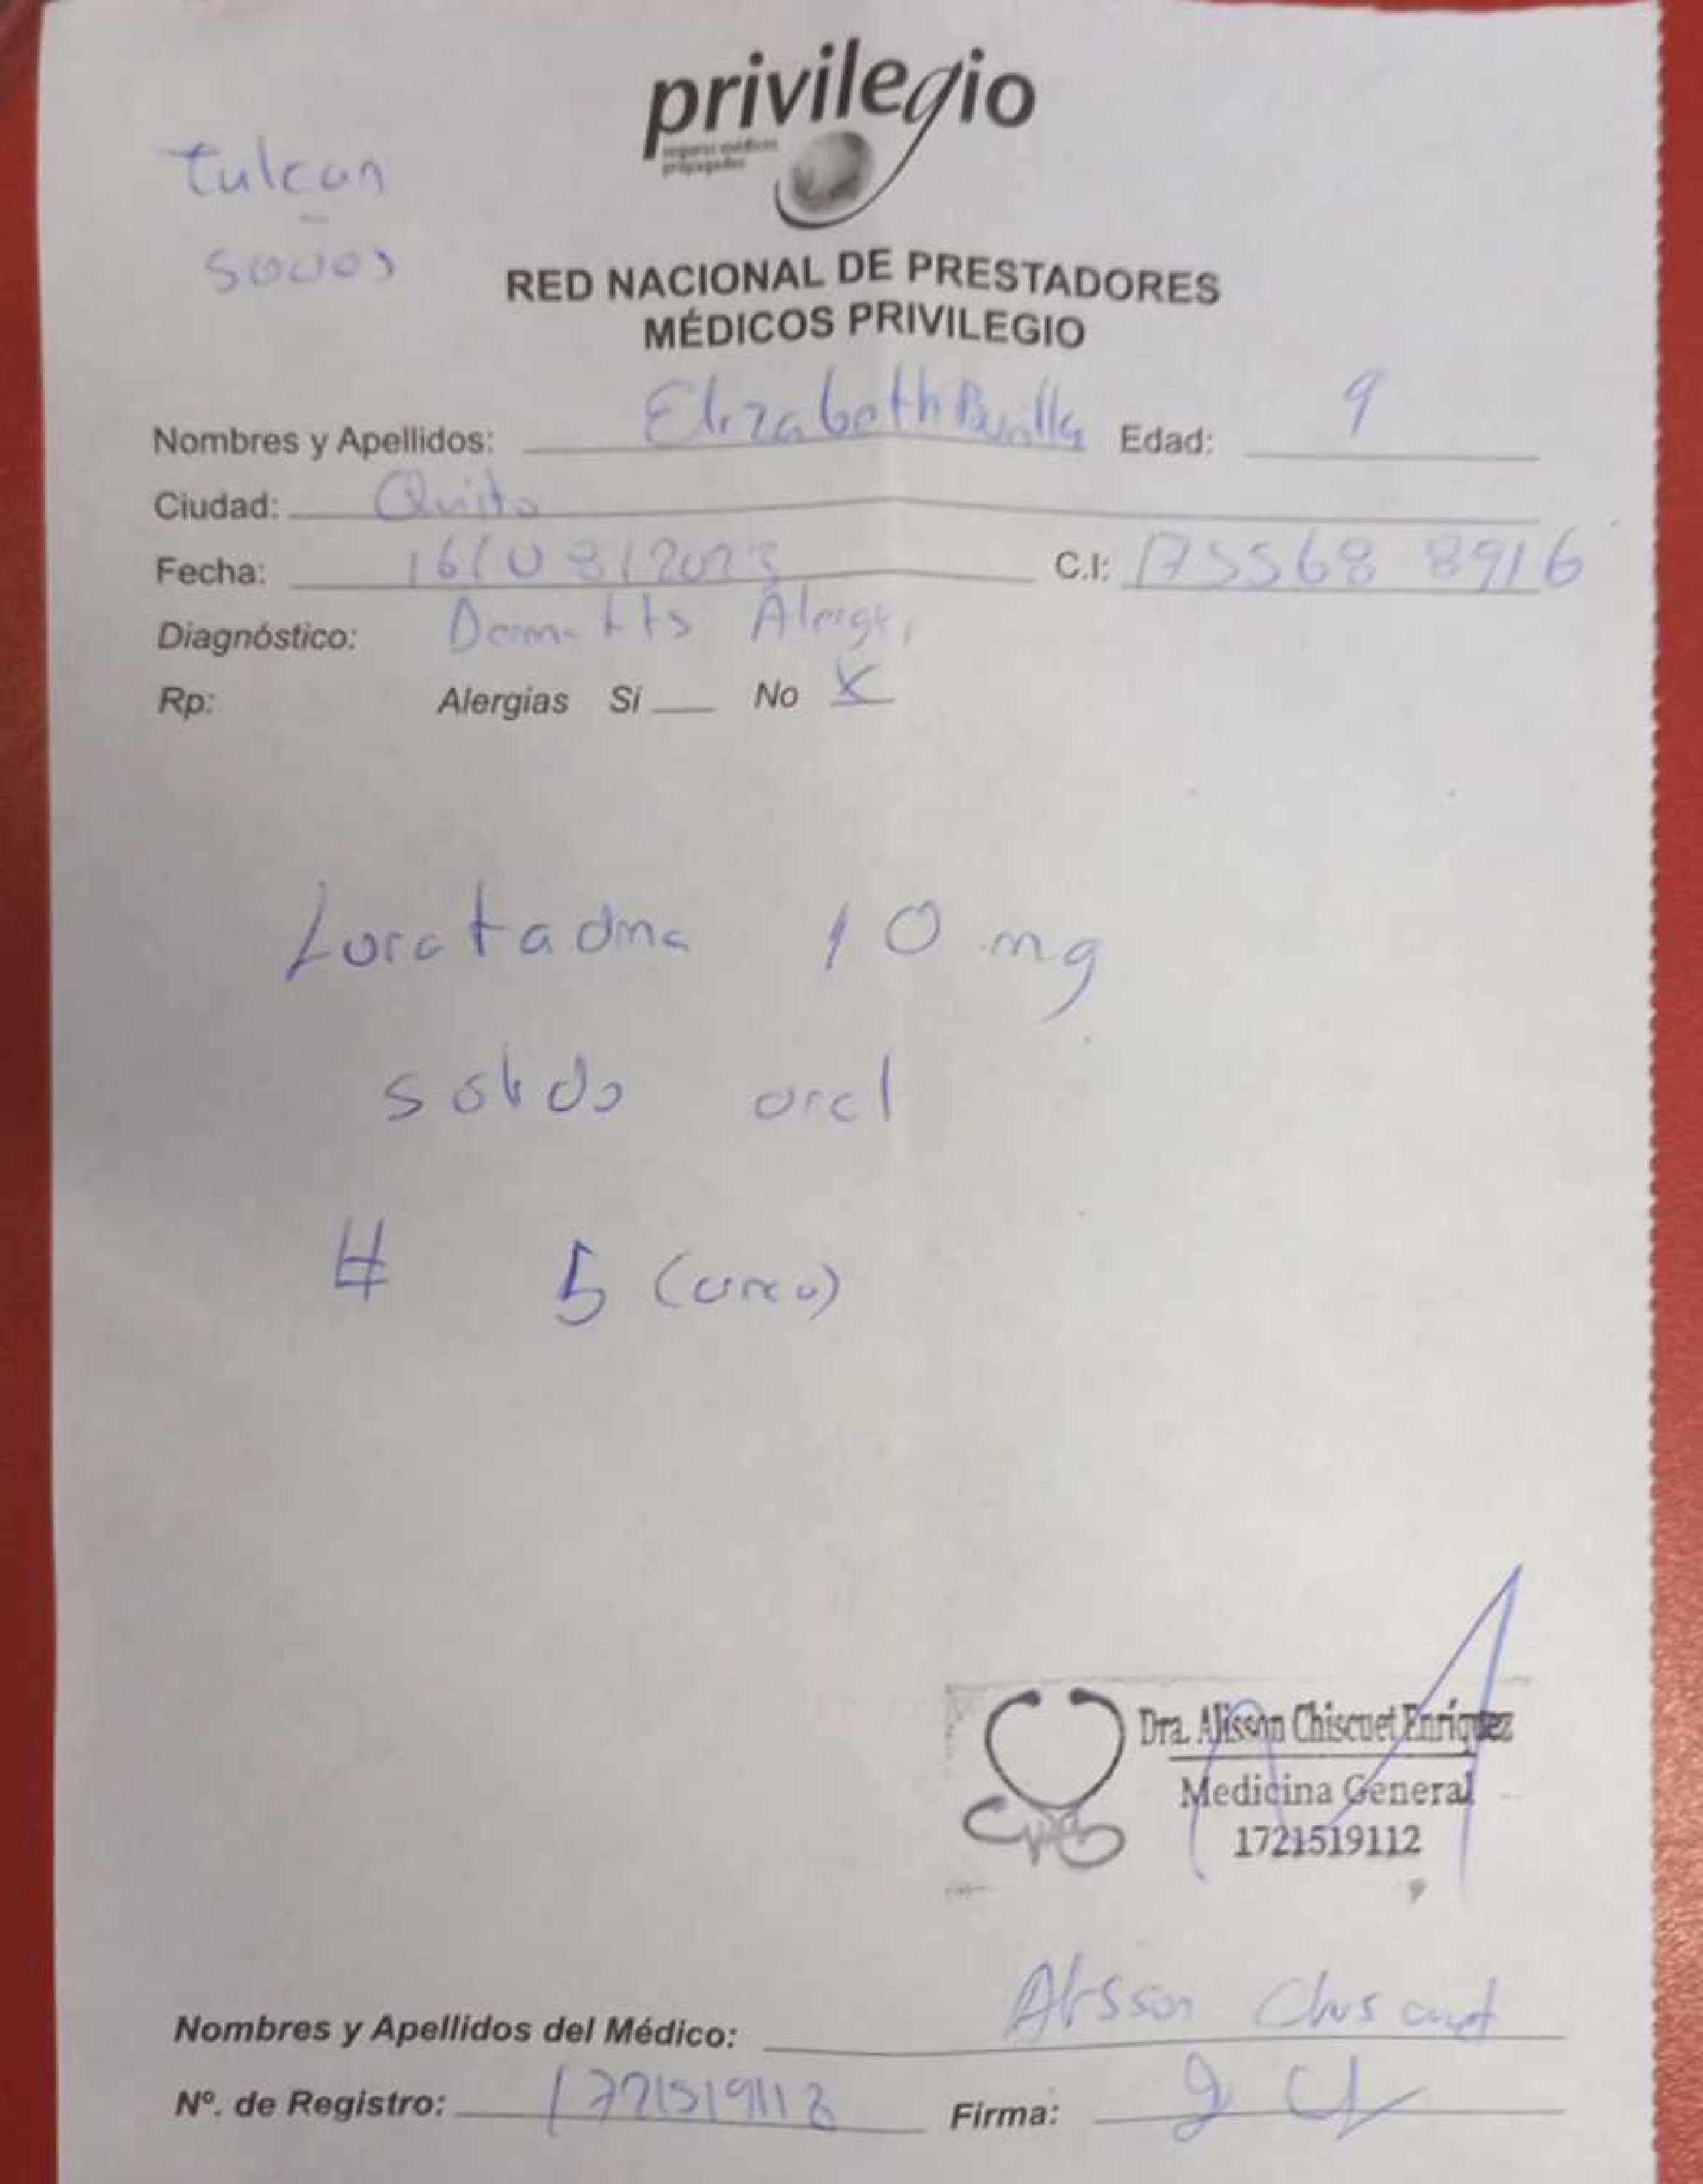 privilegio
seguros médicos
prepagados
Tulcan
socios
RED NACIONAL DE PRESTADORES
MÉDICOS PRIVILEGIO
Nombres y Apellidos: Elizabeth Edad: 9
Ciudad: Quito
Fecha: 16/08/2023 C.I: 175568 8916
Diagnóstico: Dermatitis Alergi
Rp: Alergias Si No X
Loratadina 10 mg
solido oral
# 5 (cinco)
Dra. Alisson Chiscuet Enríquez
Medicina General
1721519112
Nombres y Apellidos del Médico: Alisson Chiscuet
Nº. de Registro: 1721519112 Firma: